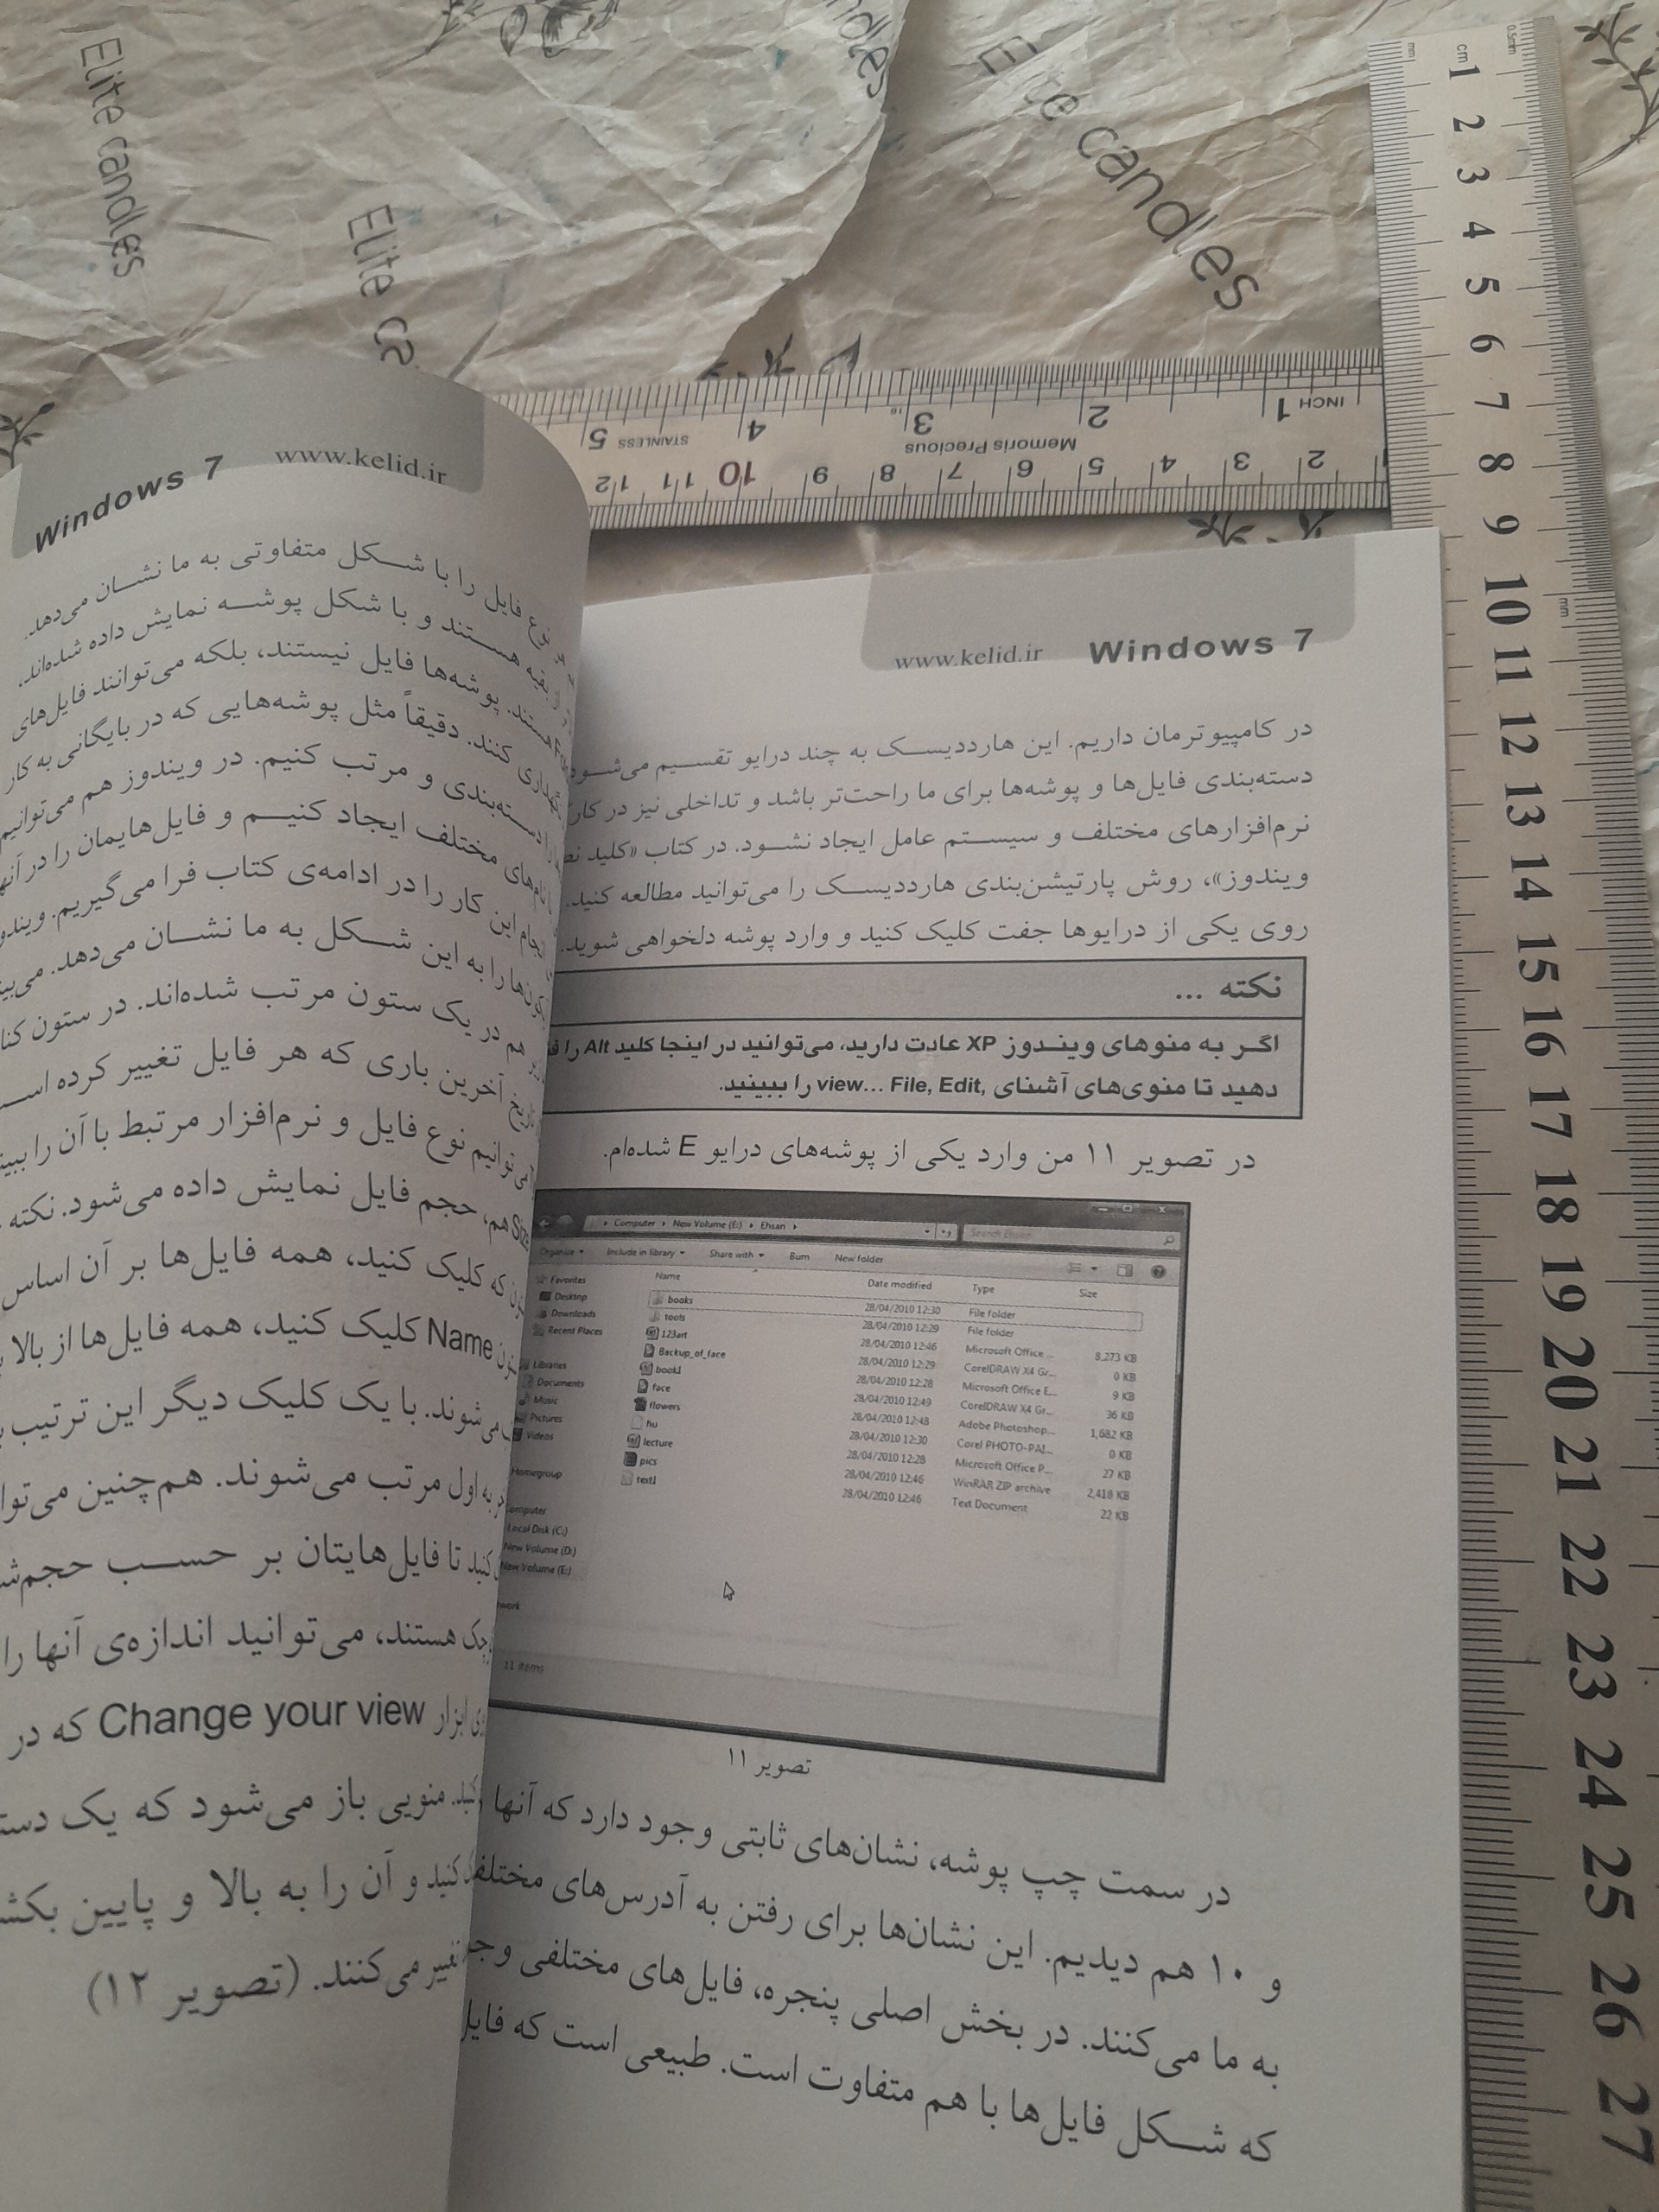 Elite candles
Elite candles
Elite
ndles
INCH 1 2 3 4 5
Memoris Precious
STAINLESS
2 3 4 5 6 7 8 9 10 11 12
mm
cm
0.5mm
1
2
3
4
5
6
7
8
9
10
mm
11
12
13
14
15
16
17
18
19
20
21
22
23
24
25
26
27
www.kelid.ir Windows 7
در کامپیوترمان داریم. این هارددیسک به چند درایو تقسیم می‌شود
دسته‌بندی فایل‌ها و پوشه‌ها برای ما راحت‌تر باشد و تداخلی نیز در کار
نرم‌افزارهای مختلف و سیستم عامل ایجاد نشود. در کتاب «کلید
ویندوز»، روش پارتیشن‌بندی هارددیسک را می‌توانید مطالعه کنید.
روی یکی از درایوها جفت کلیک کنید و وارد پوشه دلخواهی شوید.
نکته ...
اگر به منوهای ویندوز XP عادت دارید، می‌توانید در اینجا کلید Alt را
دهید تا منوی‌های آشنای File, Edit, view... را ببینید.
در تصویر ۱۱ من وارد یکی از پوشه‌های درایو E شده‌ام.
Computer New Volume (E:) Ehsan Search Ehsan
Organize Include in library Share with Burn New folder
Name Date modified Type Size
books 28/04/2010 12:30 File folder
tools 28/04/2010 12:29 File folder
123art 28/04/2010 12:46 Microsoft Office ... 8,273 KB
Backup_of_face 28/04/2010 12:29 CorelDRAW X4 Gr... 0 KB
book1 28/04/2010 12:28 Microsoft Office E... 9 KB
face 28/04/2010 12:49 CorelDRAW X4 Gr... 36 KB
flowers 28/04/2010 12:48 Adobe Photoshop... 1,682 KB
hu 28/04/2010 12:30 Corel PHOTO-PAI... 0 KB
lecture 28/04/2010 12:28 Microsoft Office P... 27 KB
pics 28/04/2010 12:46 WinRAR ZIP archive 2,418 KB
text1 28/04/2010 12:46 Text Document 22 KB
Favorites
Desktop
Downloads
Recent Places
Libraries
Documents
Music
Pictures
Videos
Homegroup
omputer
Local Disk (C:)
New Volume (D:)
New Volume (E:)
work
11 items
تصویر ۱۱
در سمت چپ پوشه، نشان‌های ثابتی وجود دارد که آنها
و ۱۰ هم دیدیم. این نشان‌ها برای رفتن به آدرس‌های مختلف
به ما می‌کنند. در بخش اصلی پنجره، فایل‌های مختلفی
که شکل فایل‌ها با هم متفاوت است. طبیعی است که فایل
Windows 7 www.kelid.ir
نوع فایل را با شکل متفاوتی به ما نشان می‌دهد.
بقیه هستند و با شکل پوشه نمایش داده شده‌اند.
هستند. پوشه‌ها فایل نیستند، بلکه می‌توانند فایل‌های
نگهداری کنند. دقیقاً مثل پوشه‌هایی که در بایگانی به کار
را دسته‌بندی و مرتب کنیم. در ویندوز هم می‌توانیم
نام‌های مختلف ایجاد کنیم و فایل‌هایمان را در آنها
انجام این کار را در ادامه‌ی کتاب فرا می‌گیریم.
آیکون‌ها را به این شکل به ما نشان می‌دهد.
هم در یک ستون مرتب شده‌اند. در ستون
تاریخ آخرین باری که هر فایل تغییر کرده
می‌توانیم نوع فایل و نرم‌افزار مرتبط با آن را
Size هم، حجم فایل نمایش داده می‌شود. نکته
که کلیک کنید، همه فایل‌ها بر آن اساس
Name کلیک کنید، همه فایل‌ها از بالا
می‌شوند. با یک کلیک دیگر این ترتیب
به اول مرتب می‌شوند. هم‌چنین
کنید تا فایل‌هایتان بر حسب
هستند، می‌توانید اندازه‌ی آنها را
ابزار Change your view که در
منویی باز می‌شود که یک
کنید و آن را به بالا و پایین
تغییر می‌کنند. (تصویر ۱۲)